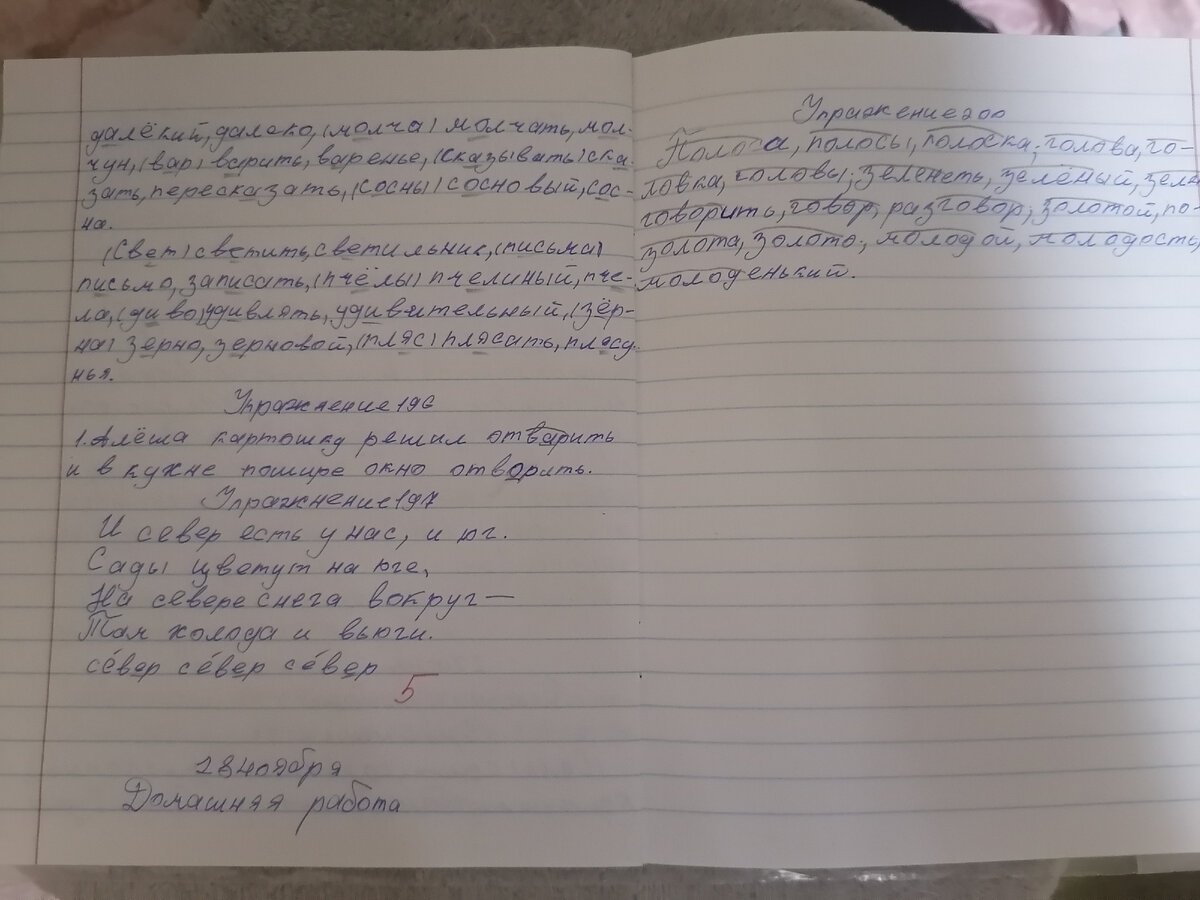 далёкий, далеко, (молча) молчать, мол-
чун, (вар) варить, варенье, (сказывать) ска-
зать, пересказать, (сосны) сосновый, сос-
на.
(Свет) светить, светильник, (письма)
письмо, записать, (пчёлы) пчелиный, пче-
ла, (диво) удивлять, удивительный, (зёр-
на) зерно, зерновой, (пляс) плясать, плясу-
нья.
Упражнение 196
1. Алёша картошку решил отварить
и в кухне пошире окно отворить.
Упражнение 197
И север есть у нас, и юг.
Сады цветут на юге,
На севере снега вокруг —
Там холода и вьюги.
се́вер се́вер се́вер
5
28 ноября
Домашняя работа
Упражнение 200
Полоса, полосы, полоска; голова, го-
ловка, головы; зеленеть, зелёный,
говорить, говор, разговор; золотой, по-
золота, золото; молодой, молодость,
молоденький.